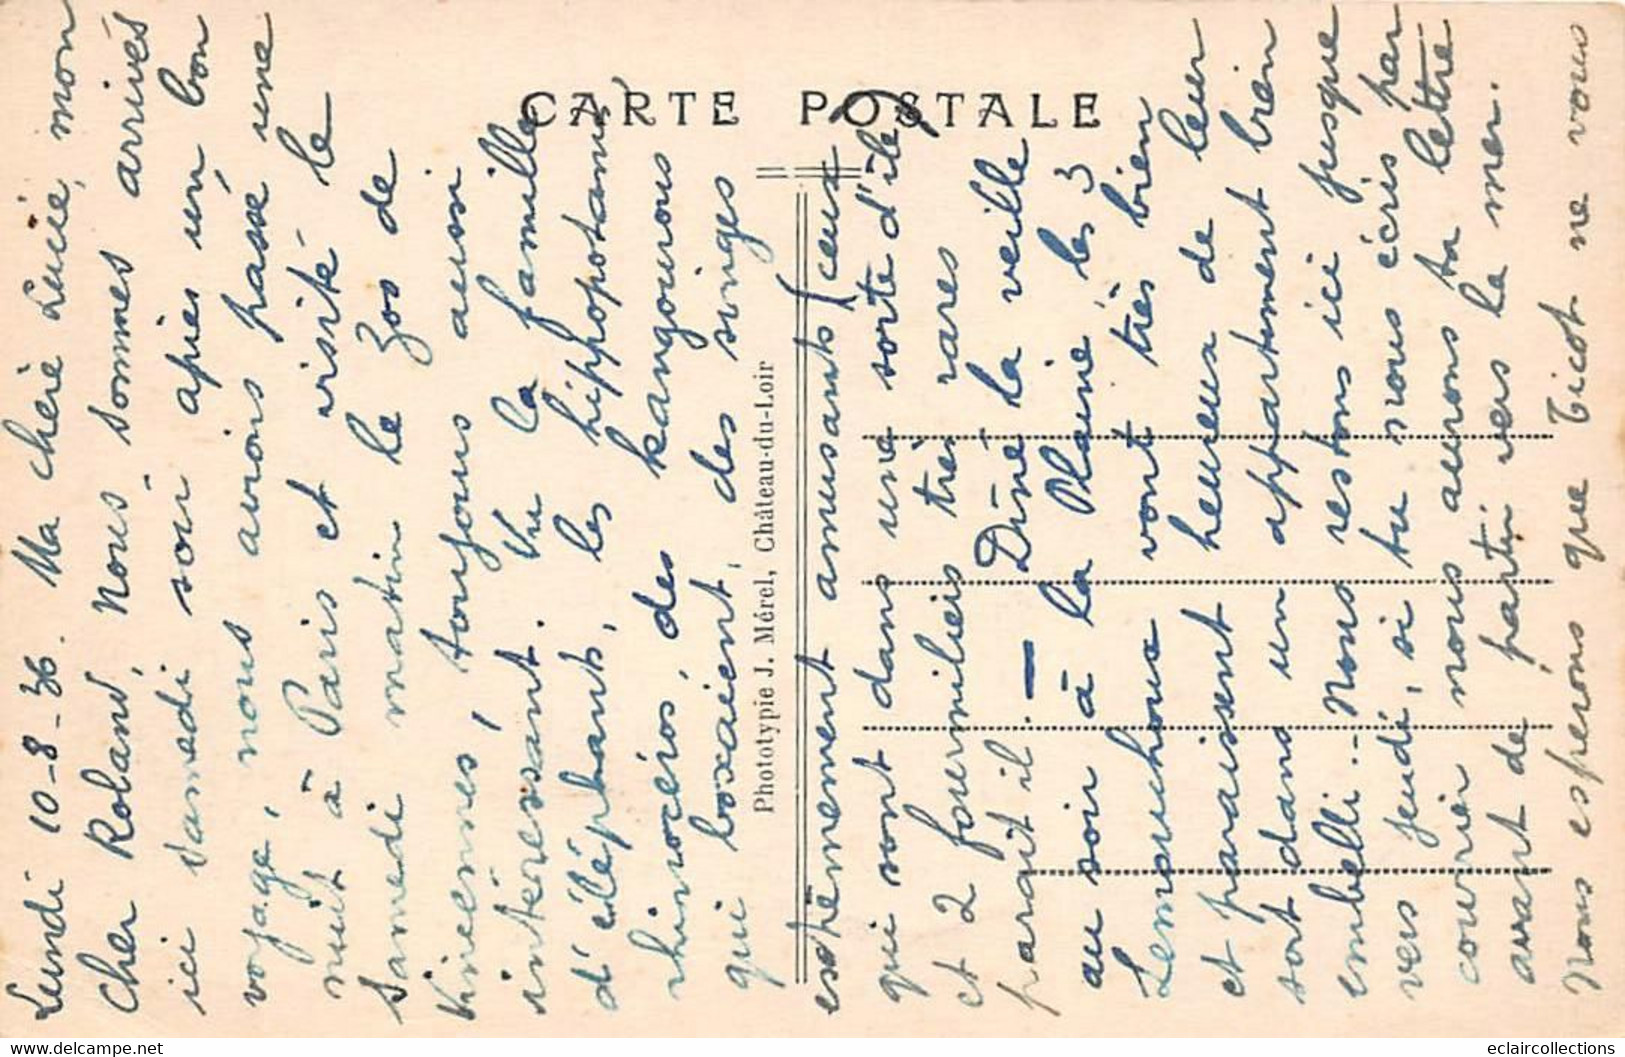 CARTE POSTALE
Phototypie J. Mérel, Château-du-Loir
Lundi 10-8-36. Ma chère Lucie, mon
cher Roland, Nous sommes arrivés
ici samedi soir après un bon
voyage, nous avions passé une
nuit à Paris et visité le
Samedi matin le Zoo de
Vincennes, toujours aussi
intéressant. Vu la famille
d'éléphants, les hippopotames
rhinocéros, des kangourous
qui boxaient, des singes
extrêmement amusants (ceux
qui sont dans une sorte d'île)
et 2 fourmiliers très rares
paraît il. — Dîné la veille
au soir à la Plaine les 3
Lemouhoux vont très bien
et paraissent heureux de leur
sort dans un appartement bien
embelli.. Nous restons ici jusque
vers jeudi, si tu nous écris par
courrier nous aurons ta lettre
avant de partir vers la mer.
Nous espérons que Ticot ne vous
eclaircollections@yahoo.fr
eclaircollections